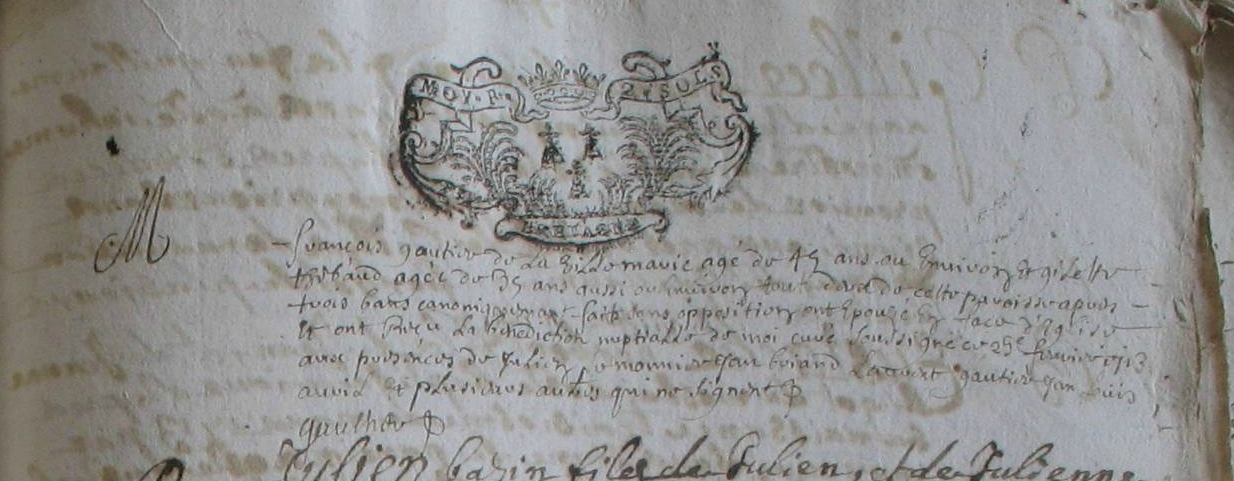 MOY.P. 2 SOLS
BRETAGNE
M
françois gautier de la ville marie agé de 45 ans ou Environ Et gilette
thebaud agée de 35 ans aussi ou Environ tout deux de cette paroisse apres
trois bans canoniquemant faits sans opposition ont Epouzé En face d'Eglise
Et ont Reçu la benediction nuptialle de moi curé soussigné ce 25e fevrier 1713
avec presences de Julien Le monnier Jean boiand gautier Jean
et plusieurs autres qui ne signent
gaultier
Julien bazin fils de Julien, et de Julienne